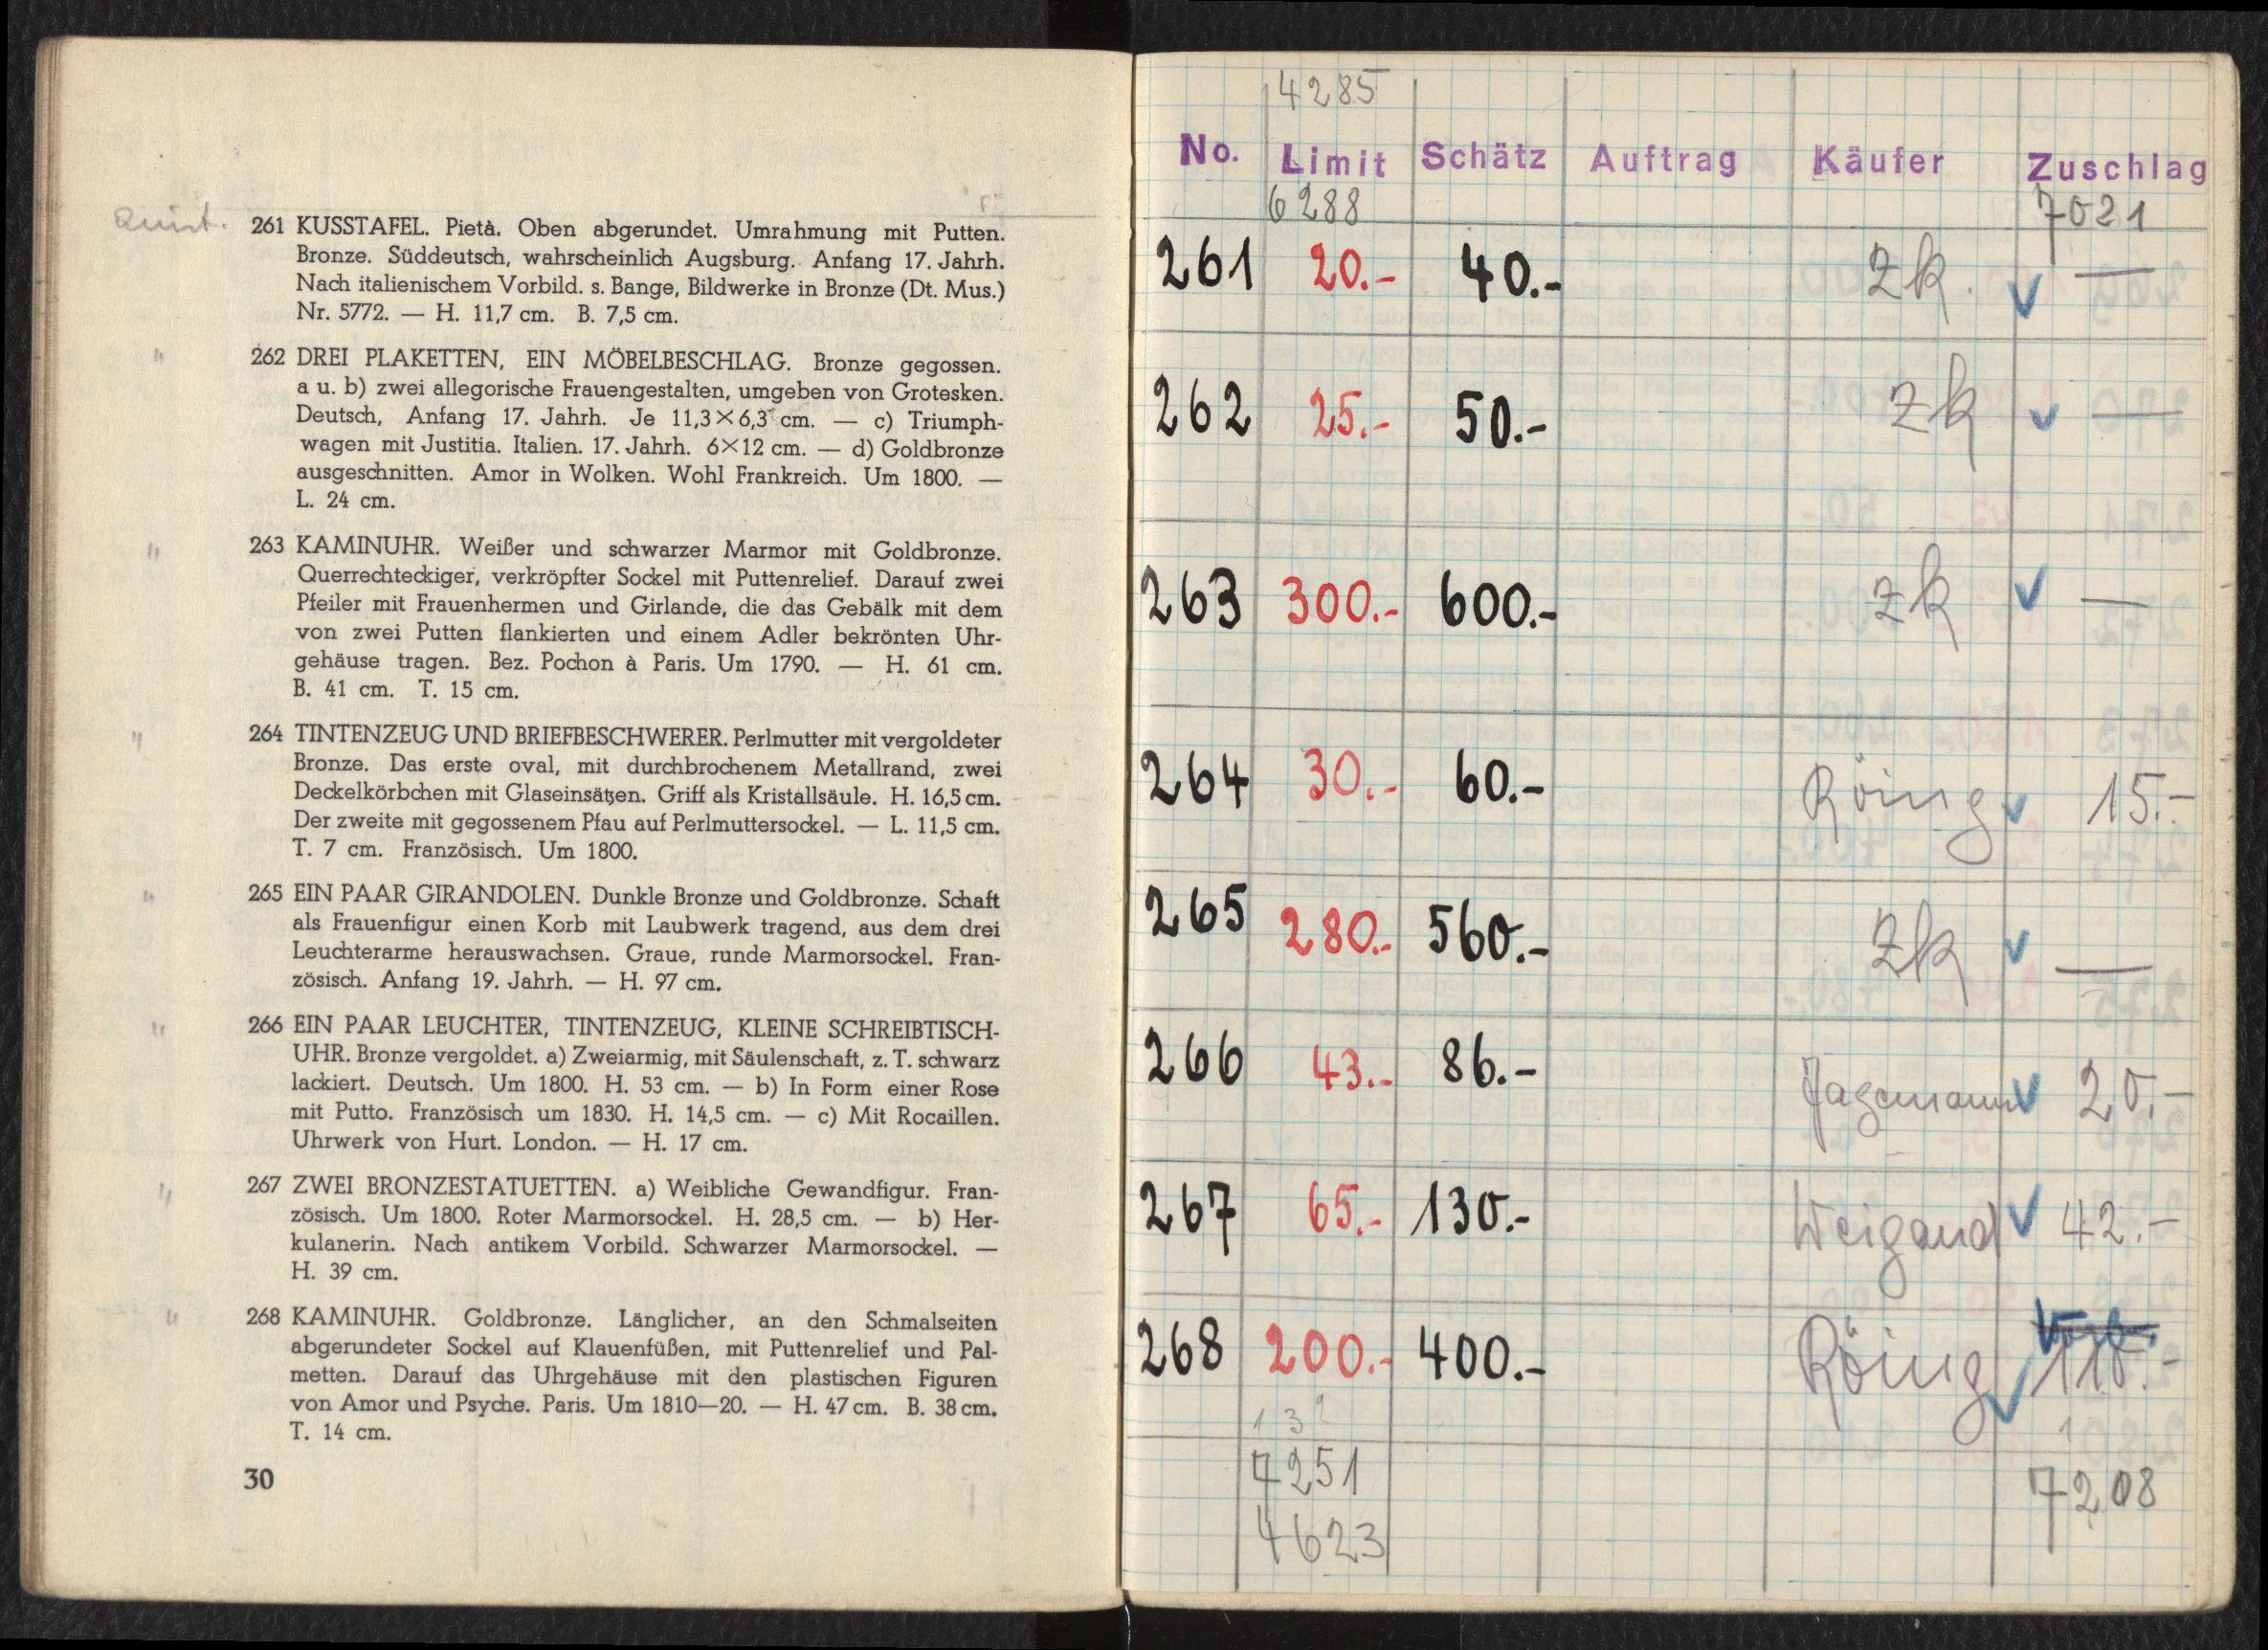 261 KUSSTAFEL. Pietà. Oben abgerundet. Umrahmung mit Putten.
Bronze. Süddeutsch, wahrscheinlich Augsburg. Anfang 17. Jahrh.
Nach italienischem Vorbild. s. Bange, Bildwerke in Bronze (Dt. Mus.)
Nr. 5772. — H. 11,7 cm. B. 7,5 cm.
" 262 DREI PLAKETTEN, EIN MÖBELBESCHLAG. Bronze gegossen.
a u. b) zwei allegorische Frauengestalten, umgeben von Grotesken.
Deutsch, Anfang 17. Jahrh. Je 11,3×6,3 cm. — c) Triumph-
wagen mit Justitia. Italien. 17. Jahrh. 6×12 cm. — d) Goldbronze
ausgeschnitten. Amor in Wolken. Wohl Frankreich. Um 1800. —
L. 24 cm.
" 263 KAMINUHR. Weißer und schwarzer Marmor mit Goldbronze.
Querrechteckiger, verkröpfter Sockel mit Puttenrelief. Darauf zwei
Pfeiler mit Frauenhermen und Girlande, die das Gebälk mit dem
von zwei Putten flankierten und einem Adler bekrönten Uhr-
gehäuse tragen. Bez. Pochon à Paris. Um 1790. — H. 61 cm.
B. 41 cm. T. 15 cm.
" 264 TINTENZEUG UND BRIEFBESCHWERER. Perlmutter mit vergoldeter
Bronze. Das erste oval, mit durchbrochenem Metallrand, zwei
Deckelkörbchen mit Glaseinsätzen. Griff als Kristallsäule. H. 16,5 cm.
Der zweite mit gegossenem Pfau auf Perlmuttersockel. — L. 11,5 cm.
T. 7 cm. Französisch. Um 1800.
" 265 EIN PAAR GIRANDOLEN. Dunkle Bronze und Goldbronze. Schaft
als Frauenfigur einen Korb mit Laubwerk tragend, aus dem drei
Leuchterarme herauswachsen. Graue, runde Marmorsockel. Fran-
zösisch. Anfang 19. Jahrh. — H. 97 cm.
" 266 EIN PAAR LEUCHTER, TINTENZEUG, KLEINE SCHREIBTISCH-
UHR. Bronze vergoldet. a) Zweiarmig, mit Säulenschaft, z. T. schwarz
lackiert. Deutsch. Um 1800. H. 53 cm. — b) In Form einer Rose
mit Putto. Französisch um 1830. H. 14,5 cm. — c) Mit Rocaillen.
Uhrwerk von Hurt. London. — H. 17 cm.
" 267 ZWEI BRONZESTATUETTEN. a) Weibliche Gewandfigur. Fran-
zösisch. Um 1800. Roter Marmorsockel. H. 28,5 cm. — b) Her-
kulanerin. Nach antikem Vorbild. Schwarzer Marmorsockel. —
H. 39 cm.
" 268 KAMINUHR. Goldbronze. Länglicher, an den Schmalseiten
abgerundeter Sockel auf Klauenfüßen, mit Puttenrelief und Pal-
metten. Darauf das Uhrgehäuse mit den plastischen Figuren
von Amor und Psyche. Paris. Um 1810—20. — H. 47 cm. B. 38 cm.
T. 14 cm.
30
4285
No. Limit Schätz Auftrag Käufer Zuschlag
6288 7021
261 20.- 40.- Zk. ✓ —
262 25.- 50.- Zk ✓ —
263 300.- 600.- Zk ✓ —
264 30.- 60.- Röing ✓ 15.-
265 280.- 560.- Zk ✓ —
266 43.- 86.- Jagemann ✓ 20.-
267 65.- 130.- Weigand ✓ 42.-
268 200.- 400.- Röing ✓ 110.-
7251 7208
4623